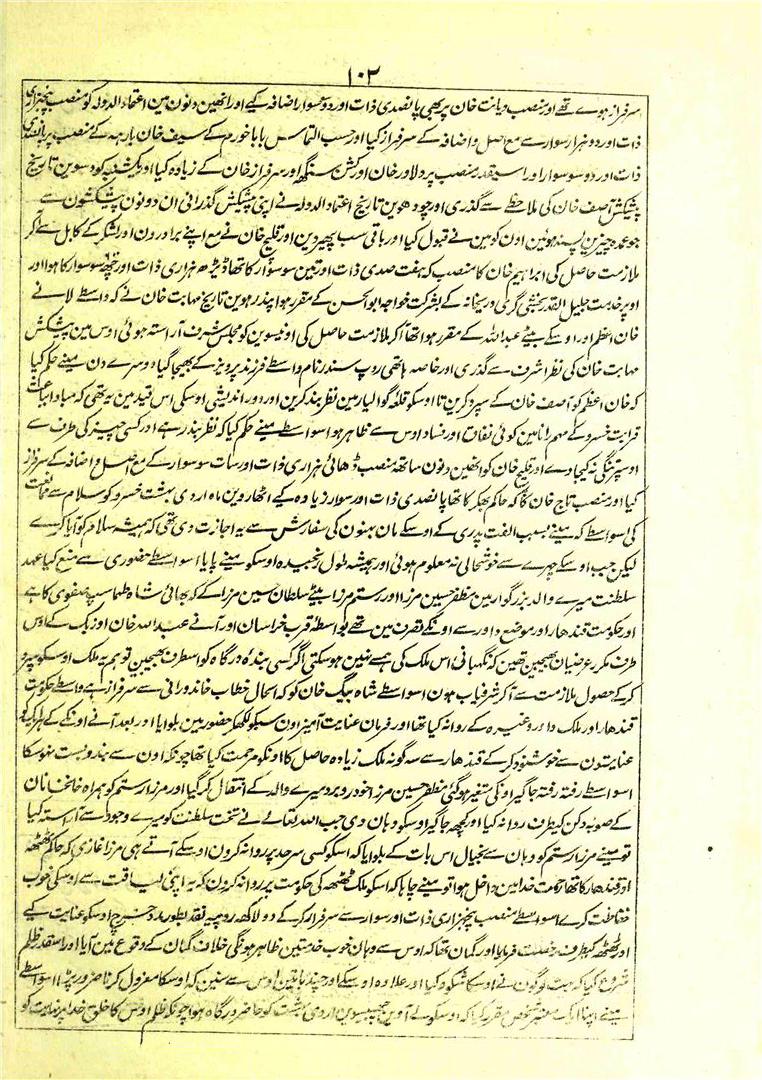 ۱۰۲
سرفراز ہوے تھے اور منصب دیانت خان پر بھی پانصدی ذات اور دو سو سوار اضافہ کیے اور انھین دنون مین اعتماد الدولہ کو منصب پنجہزاری
ذات اور دو ہزار سوار سے مع اصل و اضافہ کے سرفراز کیا اور حسب التماس بابا خورم کے سیف خان بارہہ کے منصب پر پانصدی
ذات اور دو سو سوار اور اسیقدر منصب پر دلاور خان اور کشن سنگھ اور سرفراز خان کے زیادہ کیا اور یکشنبہ کو دسوین تاریخ
پیشکش آصف خان کی ملاحظے سے گذری اور چودھوین تاریخ اعتماد الدولہ نے اپنی پیشکش گذرانی ان دونون پیشکشون سے
جو عمدہ چیزین پسند ہوئین اون کو مین نے قبول کیا اور باقی سب پھیر دین اور قلیچ خان نے مع اپنے برادرون اور لشکر کے کابل سے آکر
ملازمت حاصل کی ابراہیم خان کا منصب کہ ہفت صدی ذات اور تین سو سوار کا تھا ڈیڑھ ہزاری ذات اور چھ سو سوار کا ہوا اور
اوپر خدمت جلیل القدر بخشی گری در خانہ کے بشرکت خواجہ ابو الحسن کے مقرر ہوا پندرہوین تاریخ مہابت خان نے کہ واسطے لانے
خان اعظم اور اوسکے بیٹے عبد اللہ کے مقرر ہوا تھا آکر ملازمت حاصل کی اونیسوین کو مجلس شرف آراستہ ہوئی اوس مین پیشکش
مہابت خان کی نظر اشرف سے گذری اور خاصہ ہاتھی روپ سندر نام واسطے فرزند پرویز کے بھیجا گیا دوسرے دن مینے حکم کیا
کہ خان اعظم کو آصف خان کے سپرد کرین تا اوسکو قلعہ گوالیار مین نظر بند کرین اور دور اندیشی اوسکی اس قید مین یہ تھی کہ مبادا باعث
قرابت خسرو کے مہم رانا مین کوئی نفاق اور فساد اوس سے ظاہر ہو اسواسطے مینے حکم کیا کہ نظر بند رہے اور کسی چیز کی طرف سے
اوسپر تنگی نہ کیجاوے اور قلیچ خان کو انھین دنون ساتھ منصب ڈھائی ہزاری ذات اور سات سو سوار کے مع اصل و اضافہ کے سرفراز
کیا اور منصب تاج خان کا کہ حاکم بھکر کا تھا پانصدی ذات اور سوار زیادہ کیے اٹھاروین ماہ اردی بہشت خسرو کو سلام سے ممانعت
کی اسواسطے کہ مینے بسبب الفت پدری کے اوسکے مان بہنون کی سفارش سے یہ اجازت دی تھی کہ ہمیشہ سلام کو آیا کرے
لیکن جب اوسکے چہرے سے خوشحالی نہ معلوم ہوئی اور ہمیشہ ملول رنجیدہ اوسکو مینے پایا اسواسطے حضوری سے منع کیا عہد
سلطنت میرے والد بزرگوار مین مظفر حسین مرزا اور رستم مرزا بیٹے سلطان حسین مرزا کے کہ بھائی شاہ طہماسپ صفوی کا ہے
اور حکومت قندھار اور موضع داور سے اونکے تصرف مین تھے بواسطہ قرب خراسان اور آنے عبد اللہ خان اوزبک کے اوس
طرف مکرر عرضیان بھیجین تھین کہ نگہبانی اس ملک کی ہمسے نہین ہوسکتی اگر کسی بندہ درگاہ کو اسطرف بھیجین تو ہم یہ ملک اوسکو سپرد
کرکے حصول ملازمت سے آکر شرفیاب ہون اسواسطے شاہ بیگ خان کو کہ الحال خطاب خاندورانی سے سرفراز ہے واسطے حکومت
قندھار اور ملک داور وغیرہ کے روانہ کیا تھا اور فرمان عنایت آمیز اون سبکو لکھکر حضور مین بلوایا اور بعد آنے اونکے کے ہر ایک کو
عنایتون سے خوشنود کرکے قندھار سے سہ گونہ ملک زیادہ حاصل کا اونکو مرحمت کیا تھا چونکہ اون سے بندوبست نہوسکا
اسواسطے رفتہ رفتہ جاگیر اونکی تغیر ہوگئی مظفر حسین مرزا خود روبرو میرے والد کے انتقال کرگیا اور مرزا رستم کو ہمراہ خانخانان
کے صوبہ دکن کیطرف روانہ کیا اور کچھ جاگیر اوسکو وہان دی جب اللہ تعالے نے تخت سلطنت کو میرے وجود سے آراستہ کیا
تو مینے مرزا رستم کو وہان سے بخیال اس بات کے بلوایا کہ اسکو کسی سرحد پر روانہ کرون اوسکے آتے ہی مرزا غازی کہ حاکم ٹھٹھہ
اور قندھار کا تھا رحمت خدا مین داخل ہوا تو مینے چاہا کہ اسکو ملک ٹھٹھہ کی حکومت پر روانہ کرون کہ یہ اپنی لیاقت سے اوسکی خوب
حفاظت کرے اسواسطے منصب پنجہزاری ذات اور سوار سے سرفراز کرکے دو لاکھ روپیہ نقد بطور مدد خرچ اوسکو عنایت کیے
اور ٹھٹھہ کیطرف رخصت فرمایا اور گمان تھا کہ اوس سے وہان خوب خدمتین ظاہر ہونگی خلاف گمان کے وقوع مین آیا اور اسقدر ظلم
شروع کیا کہ بہت لوگون نے اوسکا شکوہ کیا اور علاوہ اوسکے اور چند باتین اوس سے سنین کہ اوسکا معزول کرنا ضرور پڑا اسواسطے
مینے اپنا ایک معتبر شخص مقرر کیا کہ اوسکو لے آوین چھبیسوین اردی بہشت کو حاضر درگاہ ہوا چونکہ ظلم اوس کا خلق خدا پر نہایت کو